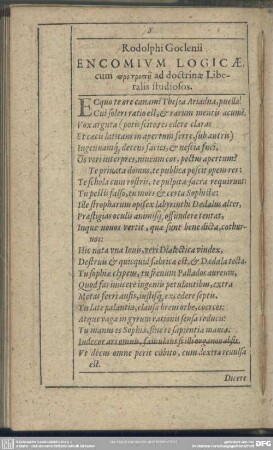 8
Rodolphi Goclenii
ENCOMIVM LOGICÆ,
cum προτροπῇ ad doctrinæ Libe-
ralis studiosos.
ECquo te ore canam? Thesea Ariadna, puella?
Cui soleri ratio est, & rarum mentis acumē.
Vox arguta (potis scitores edere claras
Et cæcis latitans in apertum ferre sub antris)
Ingenuamq́; decens facies, & nescia fuci.
Us veri interpres, niveum cor, pectus apertum?
Te privata domus, te publica poscit opem res:
Te schola cum rostris, te pulpita sacra requirunt:
Tu pellis falso, tu mors & certa Sophistæ:
Ille stropharum opifex labyrinthi Dædalus alter,
Præstigias oculis animisq́, offundere tentat,
Inque novos vertit, quæ sunt bene dicta, cothur-
nos:
Hic nata una Iovis, veri Dialectica vindex,
Destruis & quicquid fabrica est, & Dædala tecta.
Tu sophiæ clypeus, tu frenum Pallados aureum,
Quod fas iniicere ingenii petulantibus, extra
Metas ferri ausis, iustisq́, excedere septis.
Tu late palantia, clausa brevi orbe, coerces:
Atque vaga in gyrum rationis sensa reducis:
Tu manus es Sophiæ, sine te sapientia manca:
Indecor ars omnis, famulans si illi organon absit.
Vt decus omne perit cubito, cum dextra revulsa
est.
Dicere